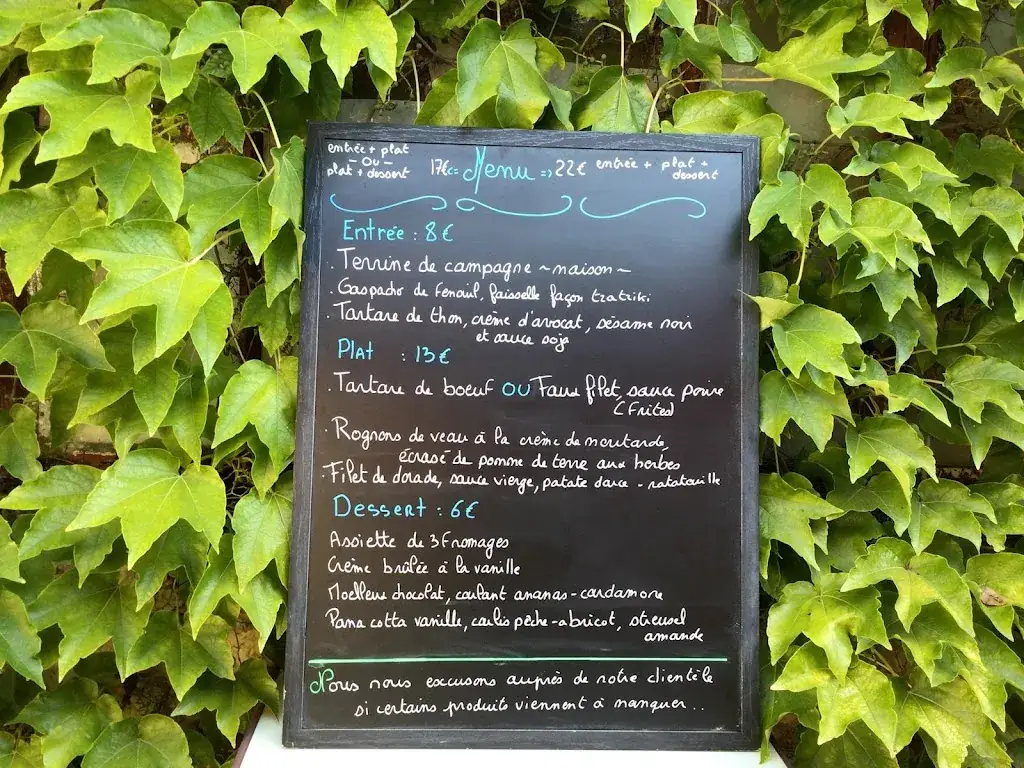 entrée + plat
- ou -
plat + dessert
17€ <= Menu => 22€
entrée + plat +
dessert
Entrée : 8€
. Terrine de campagne ~ maison ~
. Gaspacho de Fenouil, faisselle façon tzatziki
. Tartare de thon, crème d'avocat, sésame noir
et sauce soja
Plat : 13€
. Tartare de boeuf OU Faux filet, sauce poivre
(Frites)
. Rognons de veau à la crème de moutarde,
écrasé de pomme de terre aux herbes
. Filet de dorade, sauce vierge, patate douce - ratatouille
Dessert : 6€
Assiette de 3 Fromages
Crème brûlée à la vanille
Moelleux chocolat, coulant ananas - cardamome
Pana cotta vanille, coulis pêche - abricot, streusel
amande
Nous nous excusons auprès de notre clientèle
si certains produits viennent à manquer ..